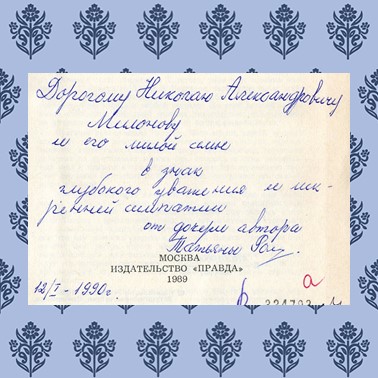 Дорогому Николаю Александровичу
Милонову
и его милой семье
в знак
глубокого уважения и иск-
ренней симпатии
от дочери автора
Татьяны
МОСКВА
ИЗДАТЕЛЬСТВО «ПРАВДА»
1989
12/I - 1990г.
а